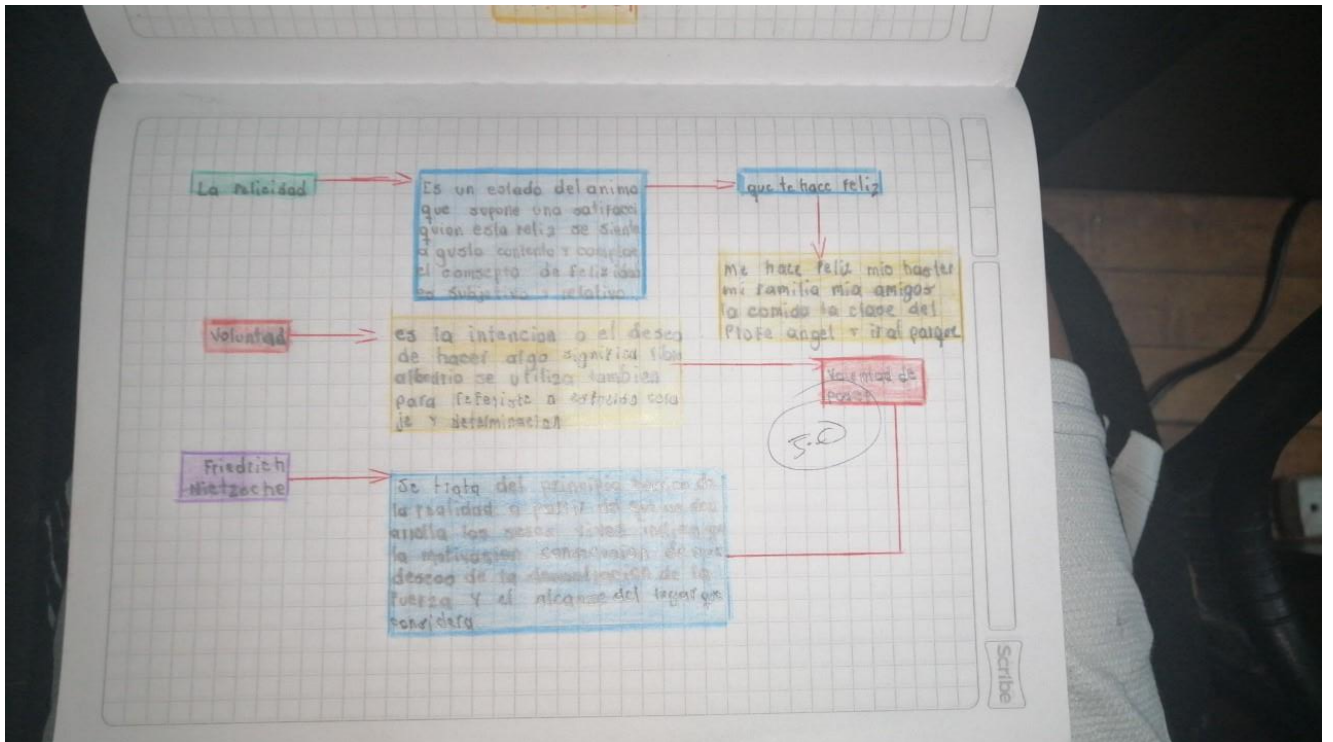 La felicidad
Es un estado del animo
que supone una satifacci
quien esta feliz se siente
a gusto contento y complac
el comsepto de felizidad
es subjetivo y relativo
que te hace feliz
me hace feliz mio
mi familia mis amigos
la comida la clase del
Profe angel y ir al parque
Voluntad
es la intencion o el deseo
de hacer algo significa libre
albedrio se utiliza tambien
para referirse a esfuerzo cora
je y determinacion
Voluntad de
poder
5.0
Friedrich
Nietzsche
Se trata del principio
la realidad a partir de
los seres vivos
la motivacion
deseos de la demostracion de la
fuerza y el alcanse del lugar que
considera
Scribe